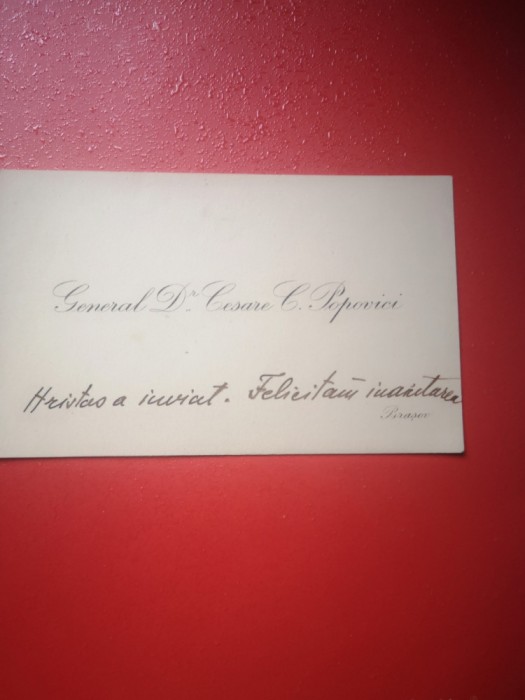 General Dr. Cesare C. Popovici
Hristos a inviat. Felicităm inaintarea
Brașov